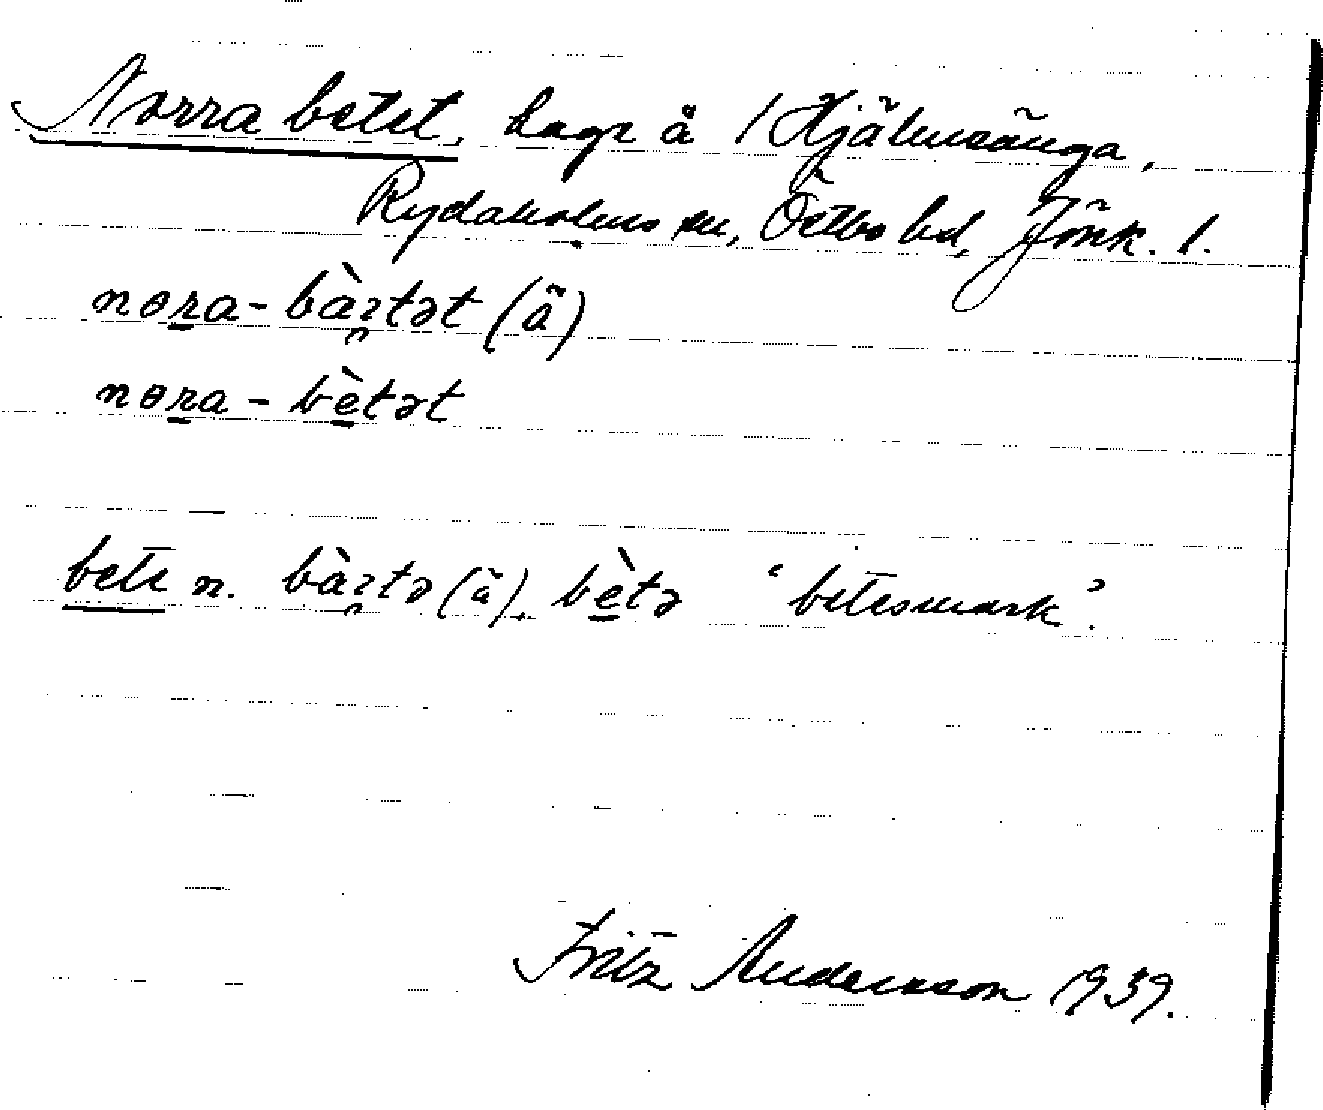 Norra betet, hage å / Hjälmsänga,
Rydaholms sn, Östbo hd, Jönk. l.
nɵra - bàɛtət (ä)
nɵra - bètət
bete n. bàɛtə (ä), bètə ‘betesmark’.
Fritz Andersson 1939.